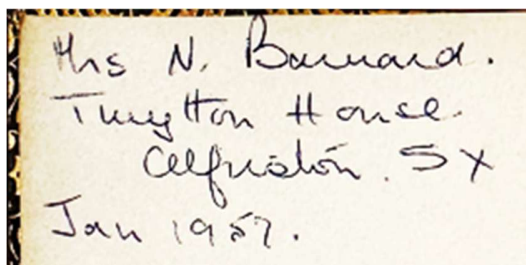 Mrs N. Barnard.
Tuytton House
Alfriston. SX
Jan 1957.